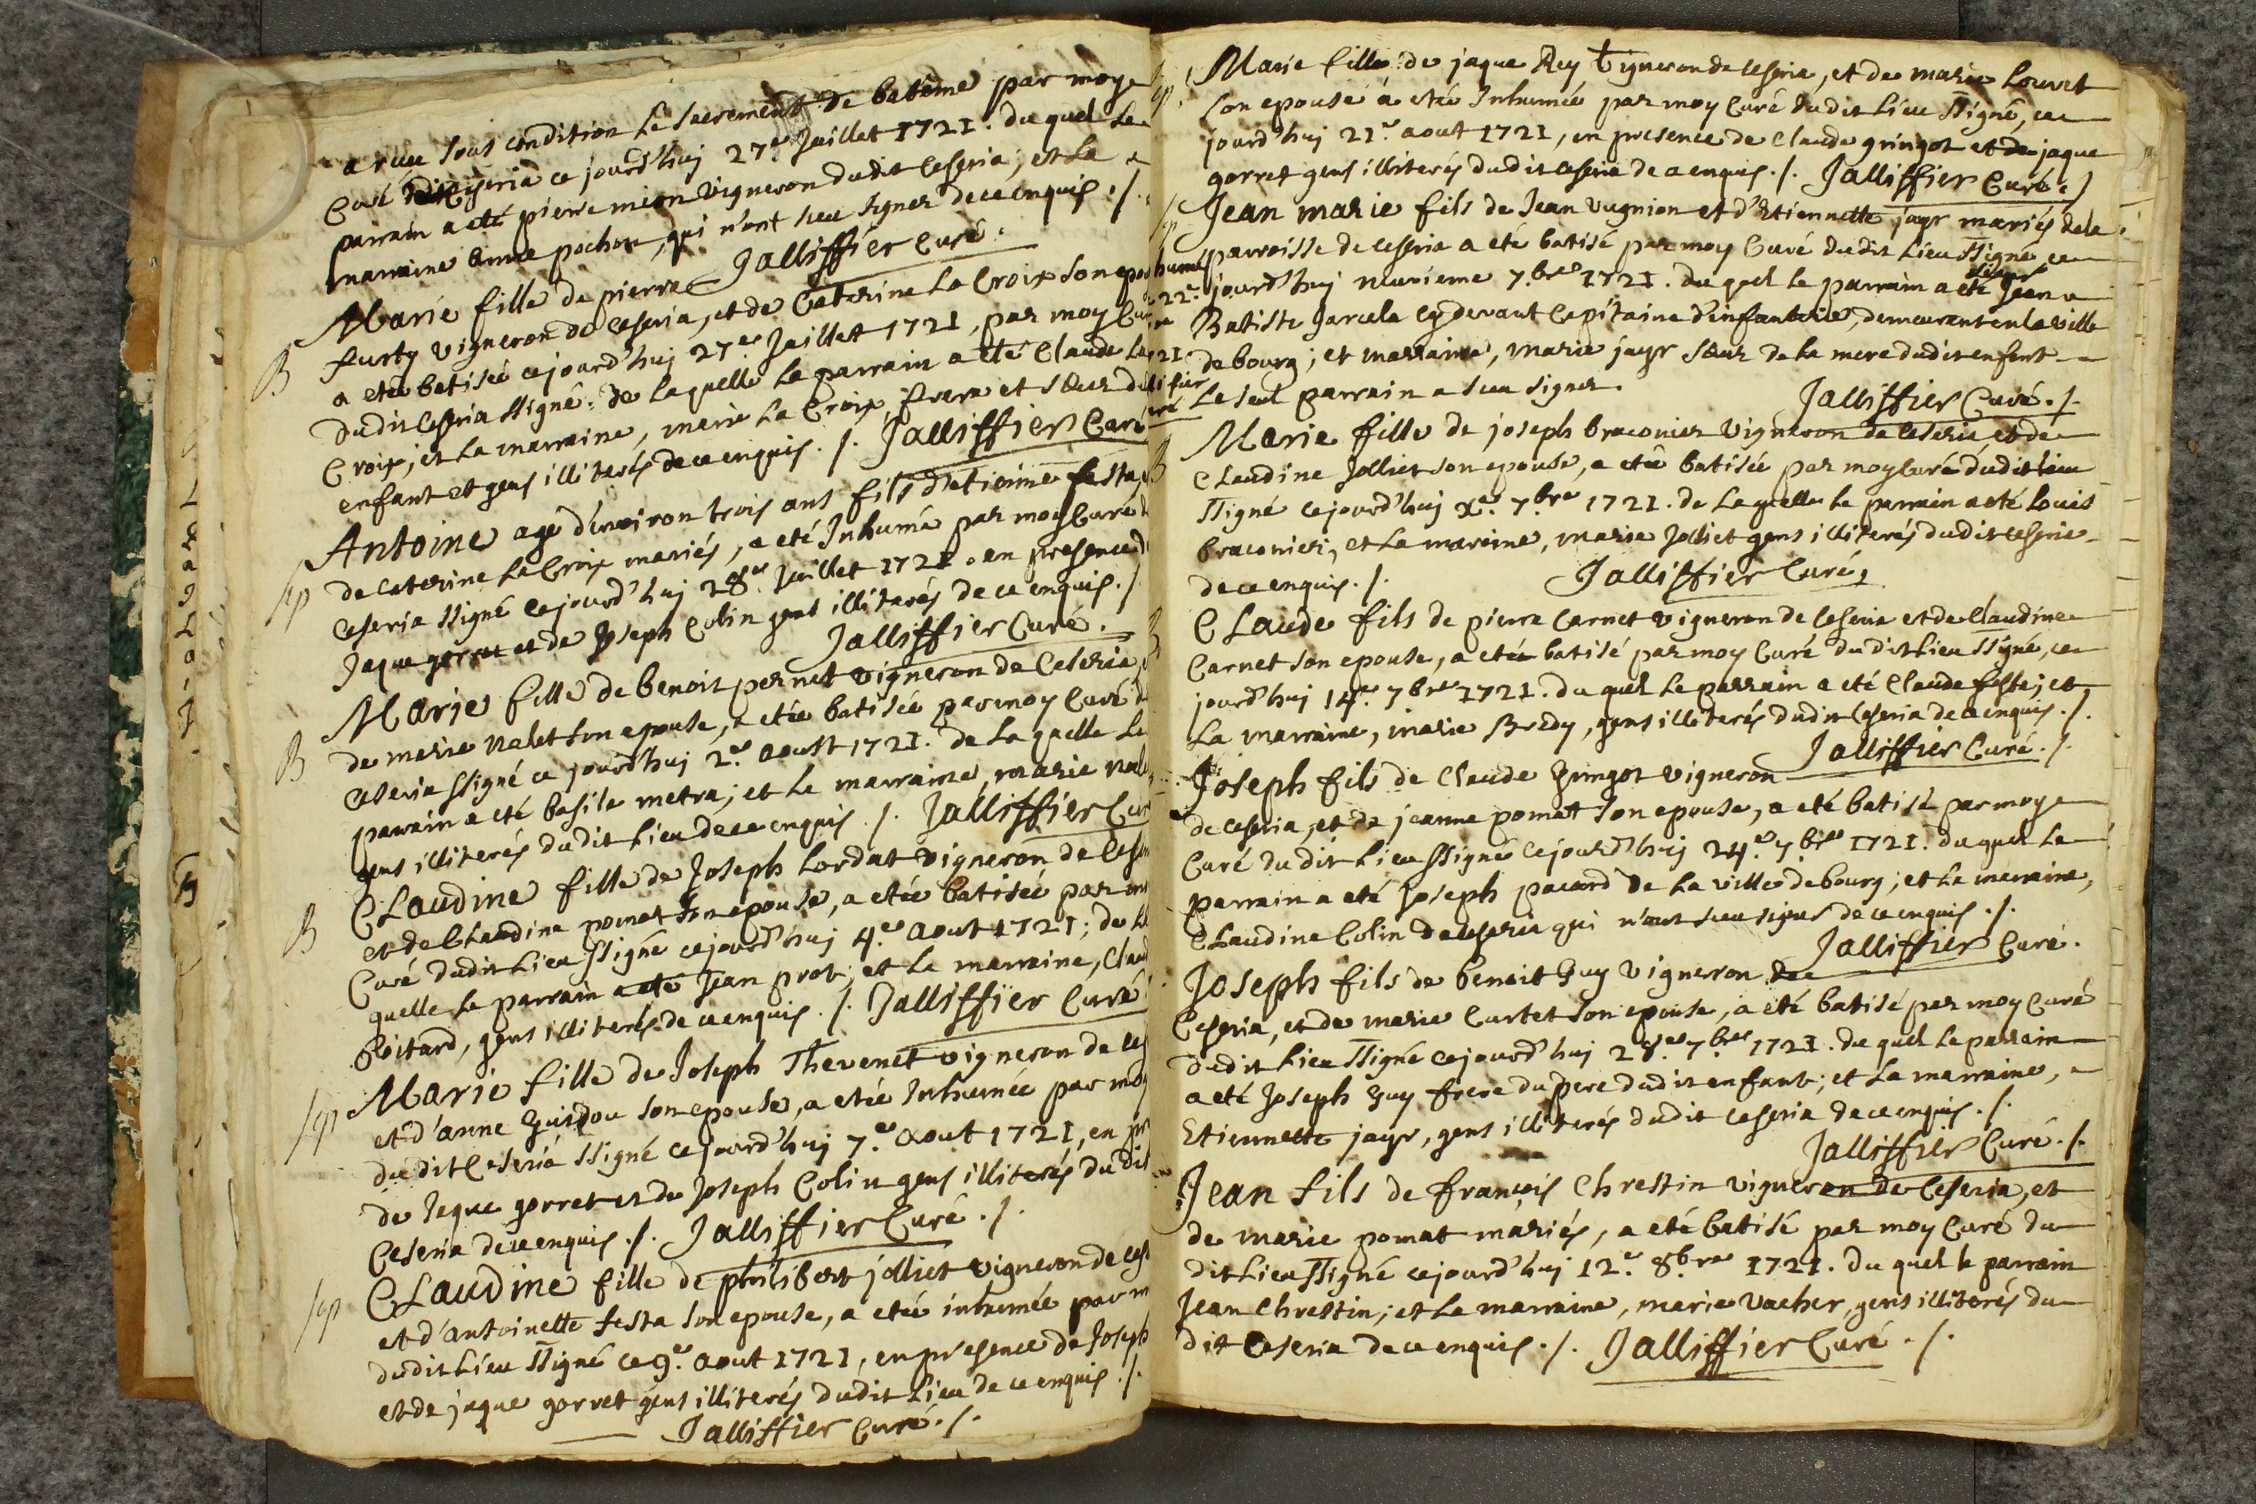 a reçu sous condition le sacrement de batême par moy
Curé dudit Ceseria ce jourd'huj 27e Juillet 1721. du quel le
parrain a eté pierre mion vigneron dudit Ceseria; et la
marraine anne pochon, qui n'ont sceu signer de ce enquis ./.
Jalliffier Curé.
Marie fille de pierre
furty vigneron de Ceseria, et de Caterine La Croix son epou
a etée batisée ce jourd'huj 27e Juillet 1721, par moy Cur
dudit Ceseria ssigné. de laquelle le parrain a eté Claude La
Croix; et la marraine, marie La Croix, frere et sœur d
enfant et gens illiterés de ce enquis ./. Jalliffier Curé
Antoine agé d'environ trois ans fils d'etienne festa,
de Caterine La Croix mariés, a eté Inhumé par moy Curé d
Ceseria ssigné ce jourd'huj 28e Juillet 1721. en presence d
Jaque gorret et de Joseph Colin gens illiterés de ce enquis ./.
Jalliffier Curé.
Marie fille de benoit pernet vigneron de Ceseria,
de marie nalet son epouse, a etée batisée par moy Curé d
Ceseria ssigné ce jourd'huj 2e aoust 1721. de laquelle le
parrain a eté basile metra; et la marraine, marie nal
gens illiterés dudit lieu de ce enquis ./. Jalliffier Cur
Claudine fille de Joseph Lordat vigneron de Ceseri
et de Claudine pomat son epouse, a etée batisée par mo
Curé dudit Lieu ssigné ce jourd'huj 4e aout 1721; de la
quelle le parrain a eté Jean prot; et la marraine, Claud
Goitard, gens illiterés de ce enquis ./. Jalliffier Curé
Marie fille de Joseph Thevenet vigneron de Ces
et d'anne Guidou son epouse, a etée Inhumée par moy
dudit Ceseria ssigné ce jourd'huj 7e aout 1721, en pr
de Jaque gorret et de Joseph Colin gens illiterés dudit
Ceseria de ce enquis ./. Jalliffier Curé ./.
Claudine fille de philibert jolliet vigneron de Ces
et d'antoinette festa son epouse, a etée inhumée par m
dudit Lieu ssigné ce 9e aout 1721, en presence de Joseph
et de jaque gorret gens illiterés dudit Lieu de ce enquis ./.
Jalliffier Curé ./.
Marie fille de jaque Rey vigneron de Ceseria, et de marie Louvet
son epouse a etée Inhumée par moy Curé dudit Lieu ssigné, ce
jourd'huj 21e aout 1721, en presence de Claude gringot et de jaque
gorret gens illiterés dudit Ceseria de ce enquis ./. Jalliffier Curé ./
Jean marie fils de Jean vugnion et d'Etiennette jayr mariés de la
parroisse de Ceseria a eté batisé par moy Curé dudit Lieu ssigné ce
jourd'huj neuvieme 7bre 1721. du quel le parrain a eté sieur Jean
Batiste Jarcela cy devant Capitaine d'infanterie, demeurant en la ville
de bourg; et marraine, marie jayr sœur de la mere dudit enfant
Le seul parrain a sceu signer.
Jalliffier Curé ./.
Marie fille de joseph braconier vigneron de Ceseria et de
Claudine Jolliet son epouse, a etée batisée par moy Curé dudit lieu
ssigné ce jourd'huj Xe 7bre 1721. de laquelle le parrain a eté Louis
braconier, et la mareine, marie Jolliet gens illiterés dudit Ceseria
de ce enquis ./.
Jalliffier Curé,
Claude fils de pierre Carnet vigneron de Ceseria et de Claudine
Carnet son epouse, a etée batisé par moy Curé dudit Lieu ssigné, ce
jourd'huj 14e 7bre 1721. du quel le parrain a eté Claude festa; et
La marraine, marie Bredy, gens illiterés dudit Ceseria de ce enquis ./.
Jalliffier Curé ./.
Joseph fils de Claude Gringot vigneron
de Ceseria, et de jeanne pomat son epouse, a eté batisé par moy
Curé dudit Lieu ssigné ce jourd'huj 24e 7bre 1721. du quel le
parrain a eté Joseph pacard de la ville de bourg; et la marraine,
Claudine Colin de Ceseria qui n'ont sceu signer de ce enquis ./.
Jalliffier Curé.
Joseph fils de benoit Guy vigneron de
Ceseria, et de marie Curtet son epouse, a eté batisé par moy Curé
dudit Lieu ssigné ce jourd'huj 28e 7bre 1721. du quel le parrain
a eté Joseph Guy frere du pere dudit enfant; et la marraine,
Etiennette jayr, gens illiterés dudit Ceseria de ce enquis ./.
Jalliffier Curé ./.
Jean fils de françois Chrestin vigneron de Ceseria, et
de marie pomat mariés, a eté batisé par moy Curé du
dit Lieu ssigné ce jourd'huj 12e 8bre 1721. Du quel le parrain
Jean Chrestin; et la marraine, marie Vacher, gens illiterés du
dit Ceseria de ce enquis ./. Jalliffier Curé ./.